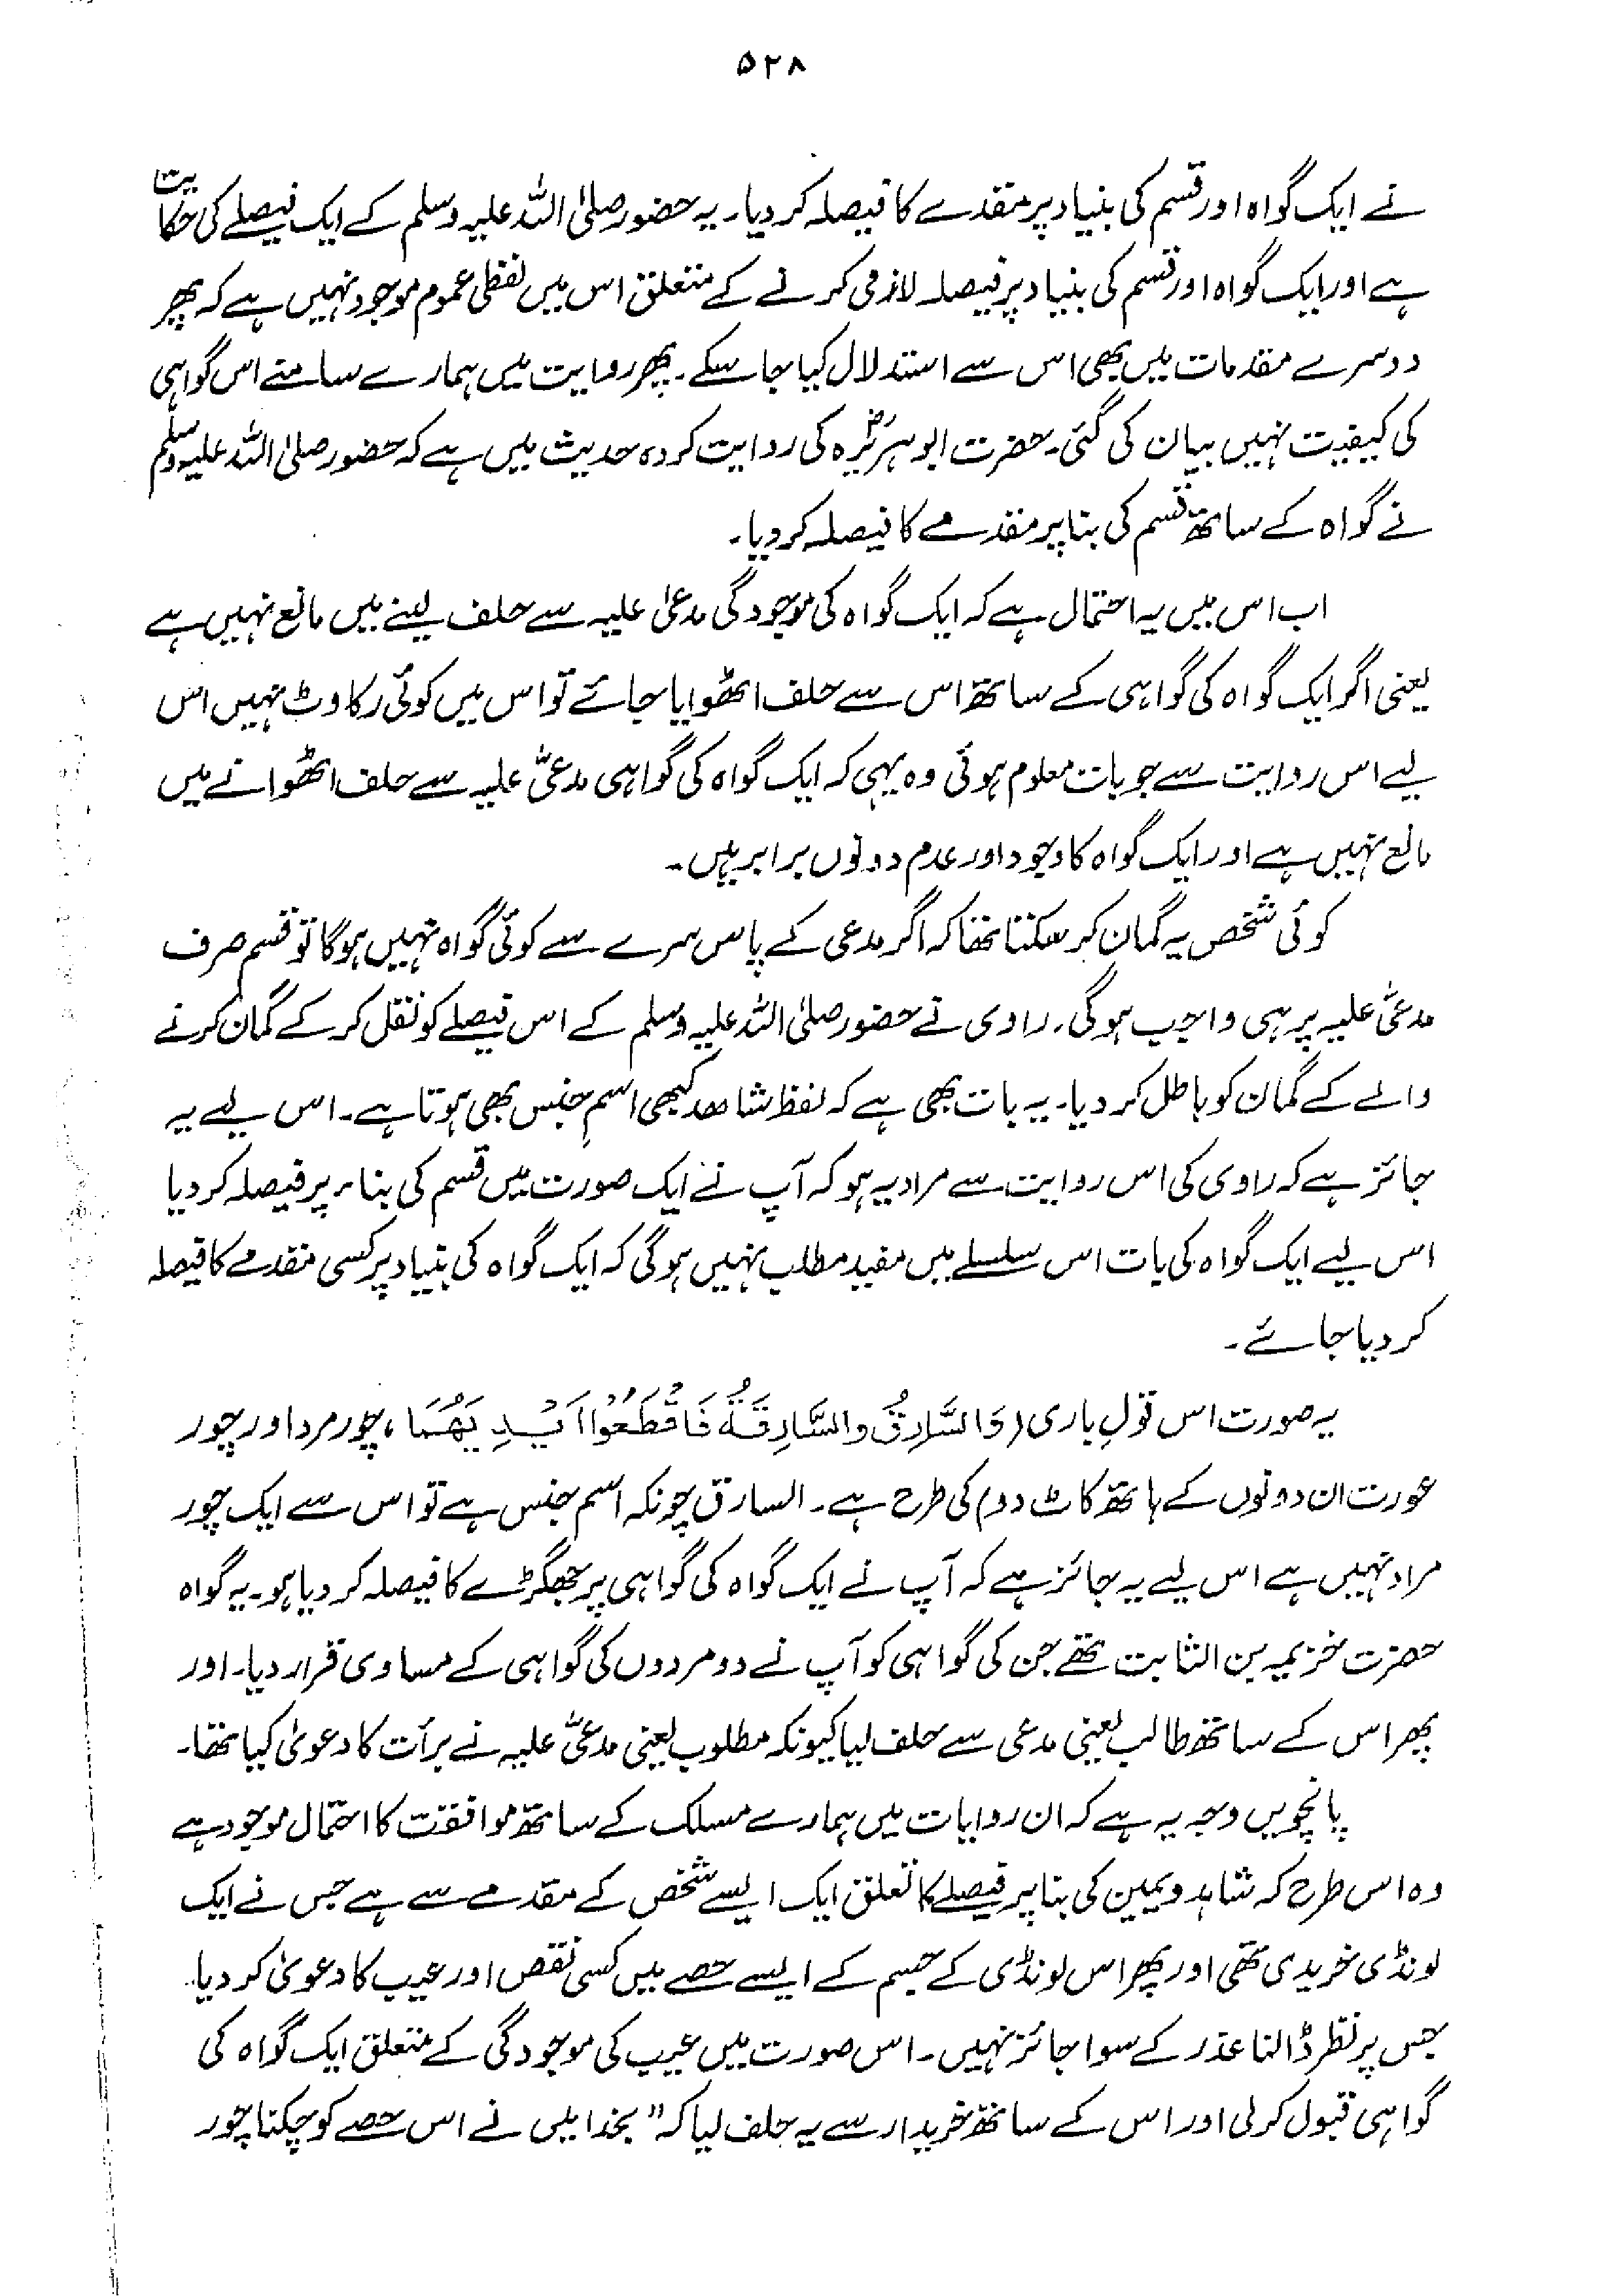 ۵۲۸
نے ایک گواہ اور قسم کی بنیاد پر مقدمے کا فیصلہ کر دیا۔ یہ حضور صلی اللہ علیہ وسلم کے ایک فیصلے کی حکایت
ہے اور ایک گواہ اور قسم کی بنیاد پر فیصلہ لازمی کرنے کے متعلق اس میں لفظی عموم موجود نہیں ہے کہ پھر
دوسرے مقدمات میں بھی اس سے استدلال کیا جا سکے۔ پھر روایت میں ہمارے سامنے اس گواہی
کی کیفیت نہیں بیان کی گئی۔ حضرت ابوہریرہؓ کی روایت کردہ حدیث میں ہے کہ حضور صلی اللہ علیہ وسلم
نے گواہ کے ساتھ قسم کی بنا پر مقدمے کا فیصلہ کر دیا۔
اب اس میں یہ احتمال ہے کہ ایک گواہ کی موجودگی مدعیٰ علیہ سے حلف لینے میں مانع نہیں ہے
یعنی اگر ایک گواہ کی گواہی کے ساتھ اس سے حلف اٹھوایا جائے تو اس میں کوئی رکاوٹ نہیں اس
لیے اس روایت سے جو بات معلوم ہوئی وہ یہی کہ ایک گواہ کی گواہی مدعیٰ علیہ سے حلف اٹھوانے میں
مانع نہیں ہے اور ایک گواہ کا وجود اور عدم دونوں برابر ہیں۔
کوئی شخص یہ گمان کر سکتا تھا کہ اگر مدعی کے پاس سرے سے کوئی گواہ نہیں ہو گا تو قسم صرف
مدعیٰ علیہ پر ہی واجب ہو گی۔ راوی نے حضور صلی اللہ علیہ وسلم کے اس فیصلے کو نقل کر کے گمان کرنے
والے کے گمان کو باطل کر دیا۔ یہ بات بھی ہے کہ لفظ شاھد کبھی اسمِ جنس بھی ہوتا ہے۔ اس لیے یہ
جائز ہے کہ راوی کی اس روایت سے مراد یہ ہو کہ آپ نے ایک صورت میں قسم کی بناء پر فیصلہ کر دیا
اس لیے ایک گواہ کی بات اس سلسلے میں مفید مطلب نہیں ہو گی کہ ایک گواہ کی بنیاد پر کسی مقدمے کا فیصلہ
کر دیا جائے۔
یہ صورت اس قولِ باری (وَالسَّارِقُ والسَّارِقَةُ فَاقْطَعُوْا اَيْدِيَهُمَا، چور مرد اور چور
عورت ان دونوں کے ہاتھ کاٹ دو) کی طرح ہے۔ السارق چونکہ اسم جنس ہے تو اس سے ایک چور
مراد نہیں ہے اس لیے یہ جائز ہے کہ آپ نے ایک گواہ کی گواہی پر جھگڑے کا فیصلہ کر دیا ہو۔ یہ گواہ
حضرت خزیمہ بن الثابت تھے جن کی گواہی کو آپ نے دو مردوں کی گواہی کے مساوی قرار دیا۔ اور
پھر اس کے ساتھ طالب یعنی مدعی سے حلف لیا کیونکہ مطلوب یعنی مدعیٰ علیہ نے برأت کا دعویٰ کیا تھا۔
پانچویں وجہ یہ ہے کہ ان روایات میں ہمارے مسلک کے ساتھ موافقت کا احتمال موجود ہے
وہ اس طرح کہ شاہد و یمین کی بنا پر فیصلے کا تعلق ایک ایسے شخص کے مقدمے سے ہے جس نے ایک
لونڈی خریدی تھی اور پھر اس لونڈی کے جسم کے ایسے حصے میں کسی نقص اور عیب کا دعویٰ کر دیا
جس پر نظر ڈالنا عذر کے سوا جائز نہیں۔ اس صورت میں عیب کی موجودگی کے متعلق ایک گواہ کی
گواہی قبول کر لی اور اس کے ساتھ خریدار سے یہ حلف لیا کہ "بخدا میں نے اس حصے کو چکنا چور